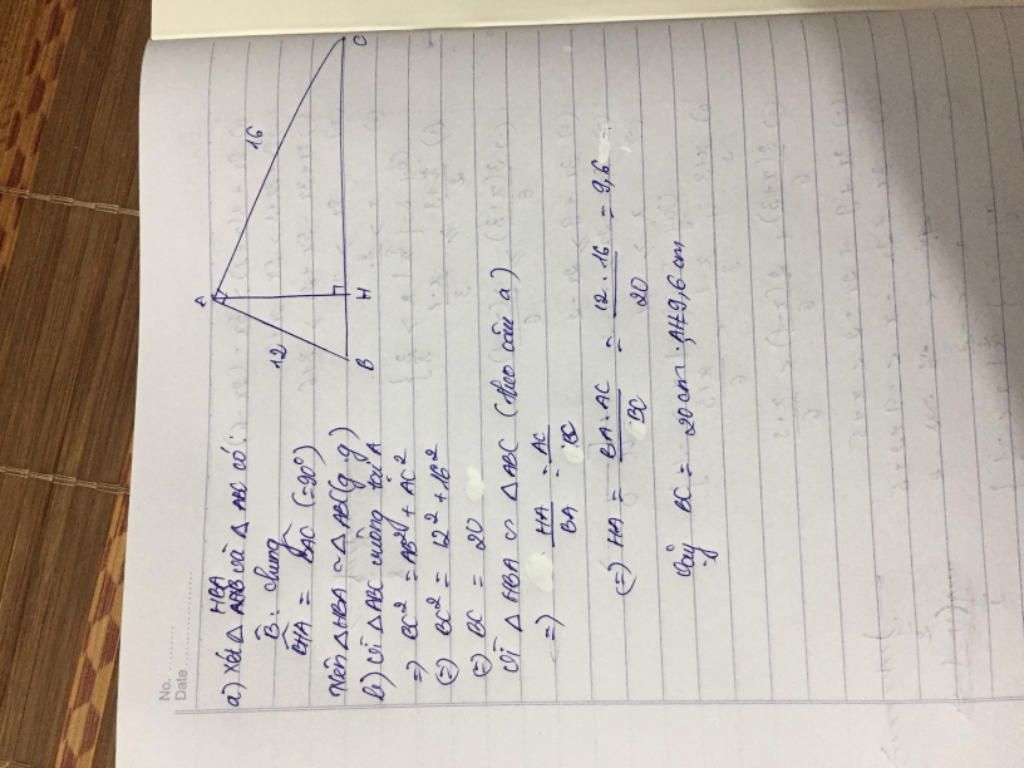 No. ............
Date ............
a) Xét Δ HBA và Δ ABC có:
B̂ : chung
B̂HA = B̂AC (=90°)
Nên ΔHBA ∽ Δ ABC (g.g)
b) Vì ΔABC vuông tại A
=> BC² = AB² + AC²
(=) BC² = 12² + 16²
(=) BC = 20
Vì Δ HBA ∽ Δ ABC (theo câu a)
=> HA/BA = AC/BC
(=) HA = BA . AC / BC = 12 . 16 / 20 = 9,6
Vậy BC = 20 cm ; AH 9,6 cm
A
12
16
B
H
C